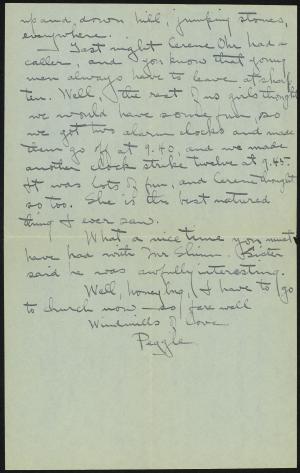 up and, down hill, jumping stones,
everywhere.
— Last night Cerene Ohr had a
caller, and you know that young
men always have to leave at half
ten. Well, the rest of us girls thought
we would have some fun, so
we got two alarm clocks and made
them go off at 9.40, and we made
another clock strike twelve at 9.45.
It was lots of fun, and Cerene thought
so too. She is the best natured
thing I ever saw.
What a nice time you must
have had with Mr Shinn. Sister
said he was awfully interesting.
Well, honey, I have to go
to church now — so fare well
Windmills of love
Peggie